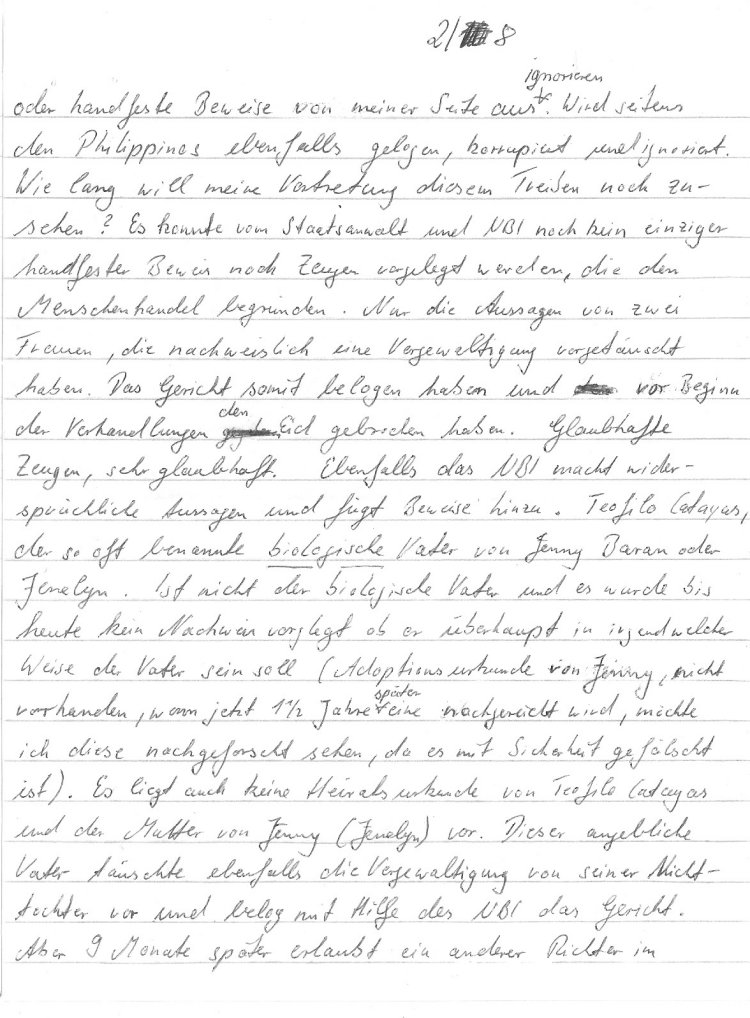 2/ 8
ignorieren
oder handfeste Beweise von meiner Seite aus. Wird seitens
den Philippinos ebenfalls gelogen, korrupiert und ignoriert.
Wie lang will meine Vertretung diesem Treiben noch zu-
sehen? Es konnte vom Staatsanwalt und NBI noch kein einziger
handfester Beweis noch Zeugen vorgelegt werden, die den
Menschenhandel begründen. Nur die Aussagen von zwei
Frauen, die nachweislich eine Vergewaltigung vorgetäuscht
haben. Das Gericht somit belogen haben und vor Beginn
den
der Verhandlungen Eid gebrochen haben. Glaubhafte
Zeugen, sehr glaubhaft. Ebenfalls das NBI macht wider-
sprüchliche Aussagen und fügt Beweise hinzu. Teofilo Catayas,
der so oft benannte biologische Vater von Jenny Baran oder
Jenelyn. Ist nicht der biologische Vater und es wurde bis
heute kein Nachweis vorglegt ob er überhaupt in irgendwelcher
Weise der Vater sein soll (Adoptionsurkunde von Jenny, nicht
später
vorhanden, wenn jetzt 1 1/2 Jahre eine nachgereicht wird, möchte
ich diese nachgeforscht sehen, da es mit Sicherheit gefälscht
ist). Es liegt auch keine Heiratsurkunde von Teofilo Catayas
und der Mutter von Jenny (Jenelyn) vor. Dieser angebliche
Vater täuschte ebenfalls die Vergewaltigung von seiner Nicht-
tochter vor und belog mit Hilfe des NBI das Gericht.
Aber 9 Monate später erlaubt ein anderer Richter im